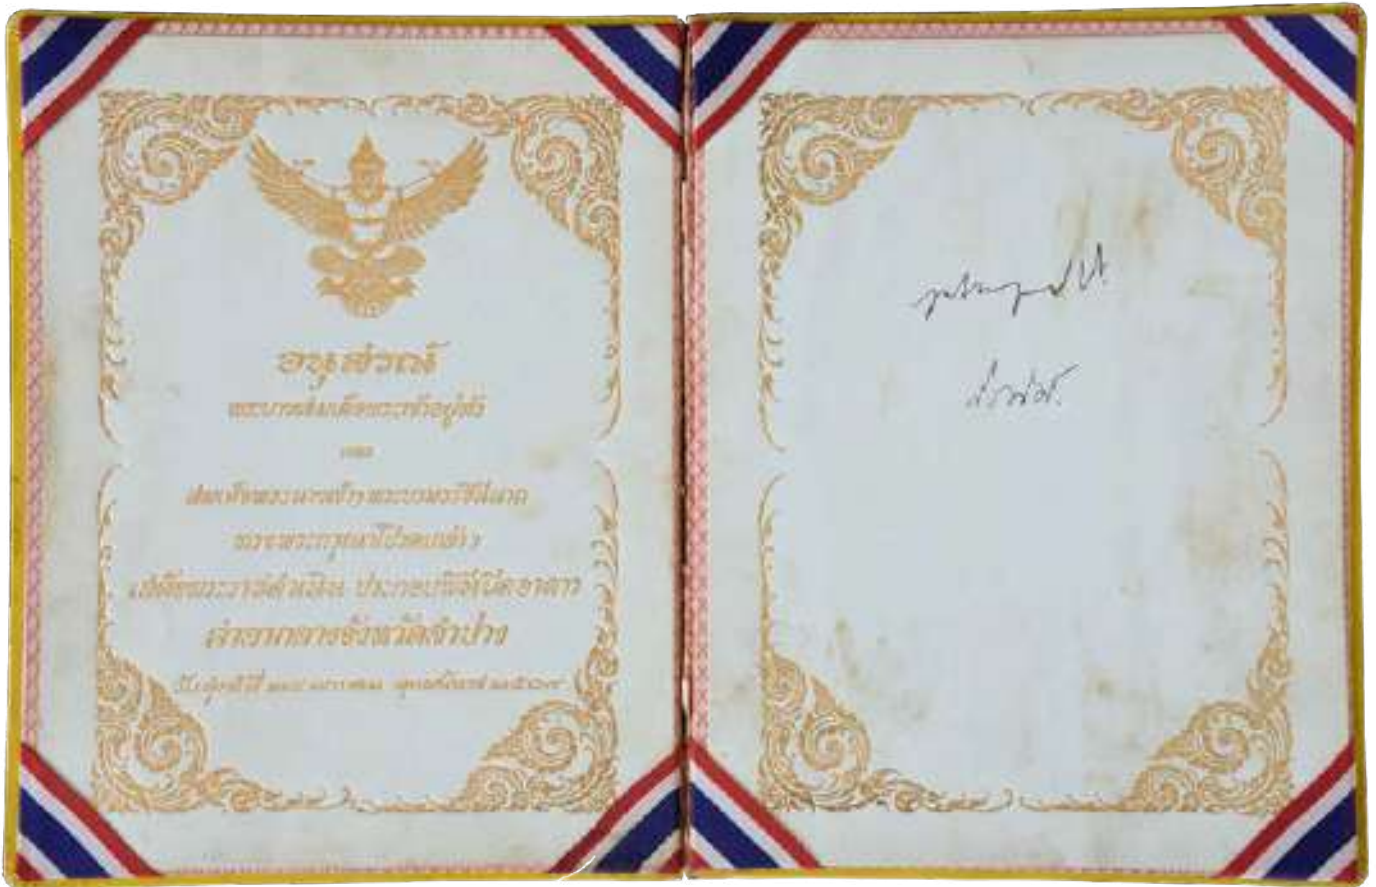 อนุสรณ์
พระบาทสมเด็จพระเจ้าอยู่หัว
และ
สมเด็จพระนางเจ้าฯ พระบรมราชินีนาถ
ทรงพระกรุณาโปรดเกล้าฯ
เสด็จพระราชดำเนิน ประกอบพิธีเปิดอาคาร
ศาลากลางจังหวัดลำปาง
วันศุกร์ที่ มกราคม พุทธศักราช
ภูมิพลอดุลยเดช ปร.
สิริกิติ์